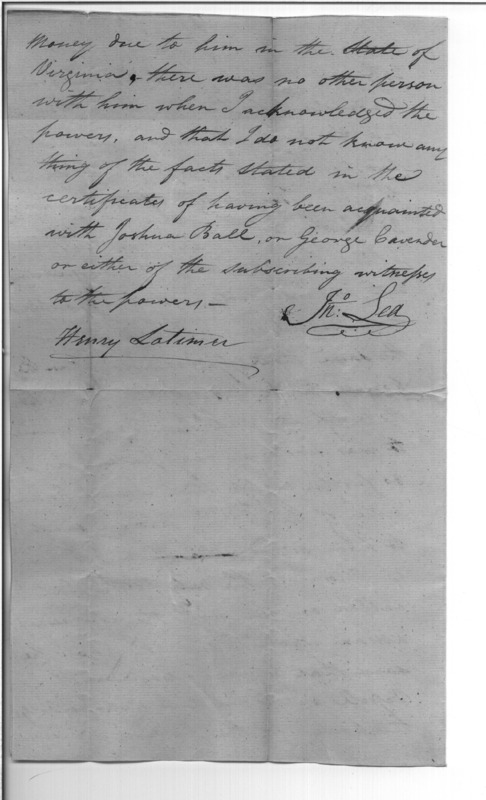 Money due to him in the State of
Virginia, there was no other person
with him when I acknowledged the
powers, and that I do not know any
thing of the facts stated in the
certificates of having been acquainted
with Joshua Ball, or George Cavender
or either of the subscribing witnesses
to the powers—
Jno: Lea
Henry Latimer